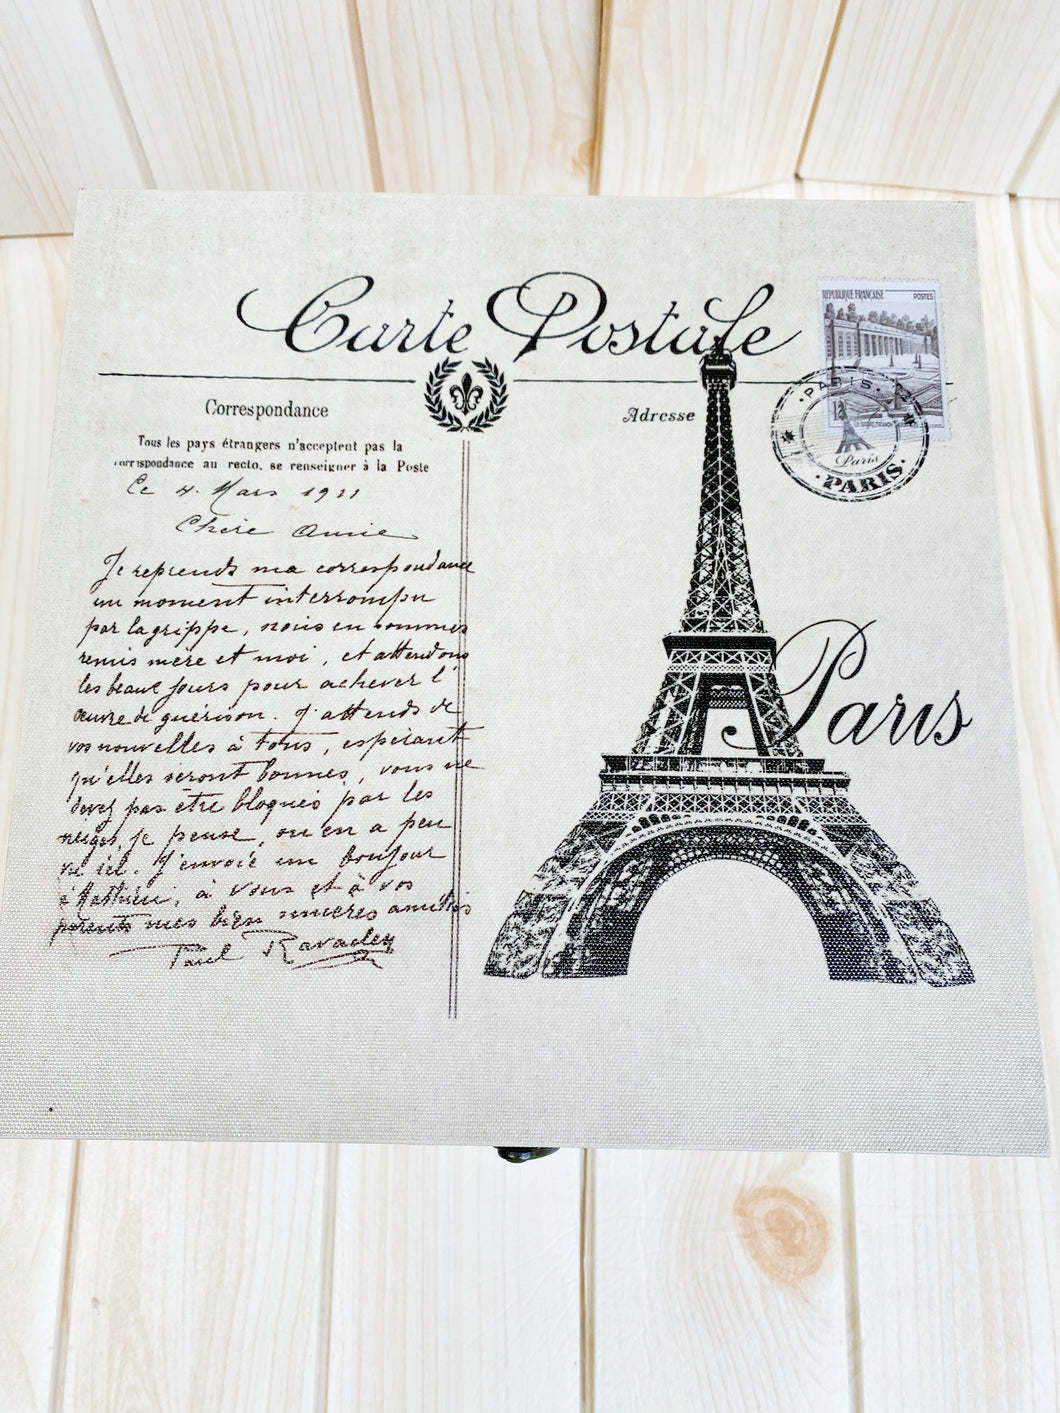 Carte Postale
REPUBLIQUE FRANÇAISE POSTES
Correspondance
Adresse
Tous les pays étrangers n'acceptent pas la
correspondance au recto, se renseigner à la Poste
PARIS
12
Paris
PARIS
Ce 4 Mars 1911
Chère Amie
Je reprends ma correspondance
un moment interrompu
par la grippe, nous en sommes
remis mère et moi, et attendons
les beaux jours pour achever l'
œuvre de guérison. J'attends de
vos nouvelles à tous, espérant
qu'elles seront bonnes, vous ne
devez pas être bloqués par les
neiges, je pense, on en a peu
vu ici. J'envoie un bonjour
à Mathieu, à vous et à vos
parents mes bien sincères amitiés
Paul
Paris